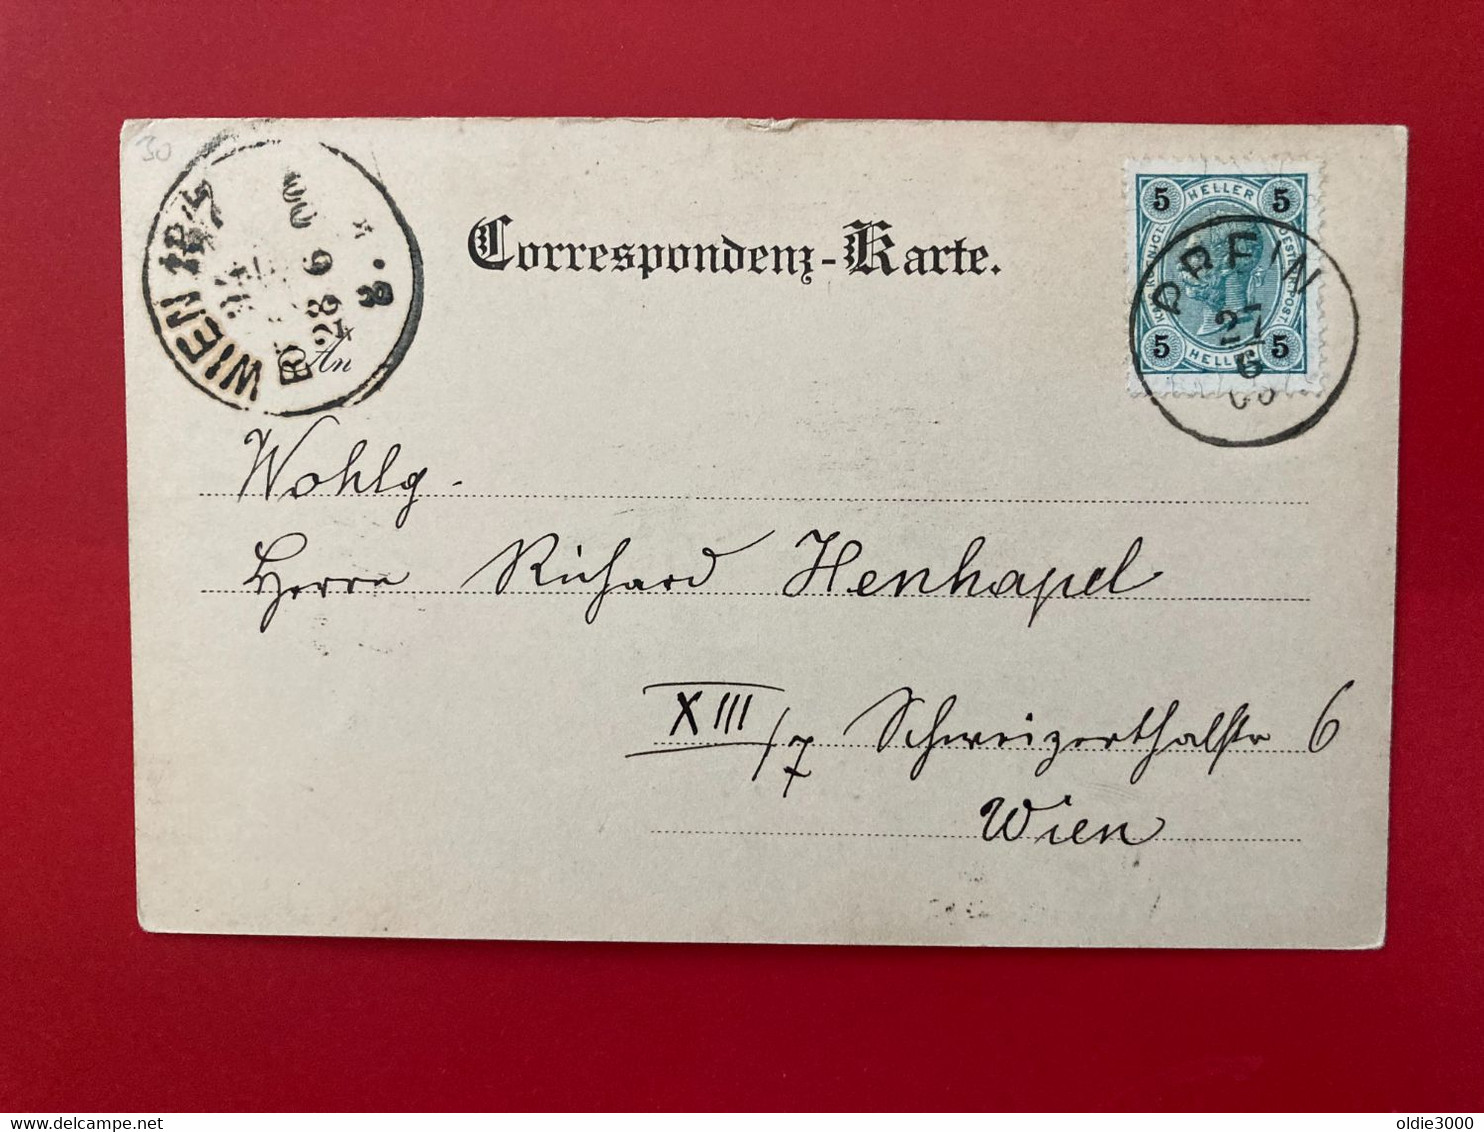 30
Correspondenz-Karte.
5 HELLER 5
5 HELLER 5
PREIN
27
6
WIEN
28 6
An
Wohlg.
Herrn Richard Henhapel
XIII/7 Schweizerthalstr 6
Wien
delcampe.net
oldie3000